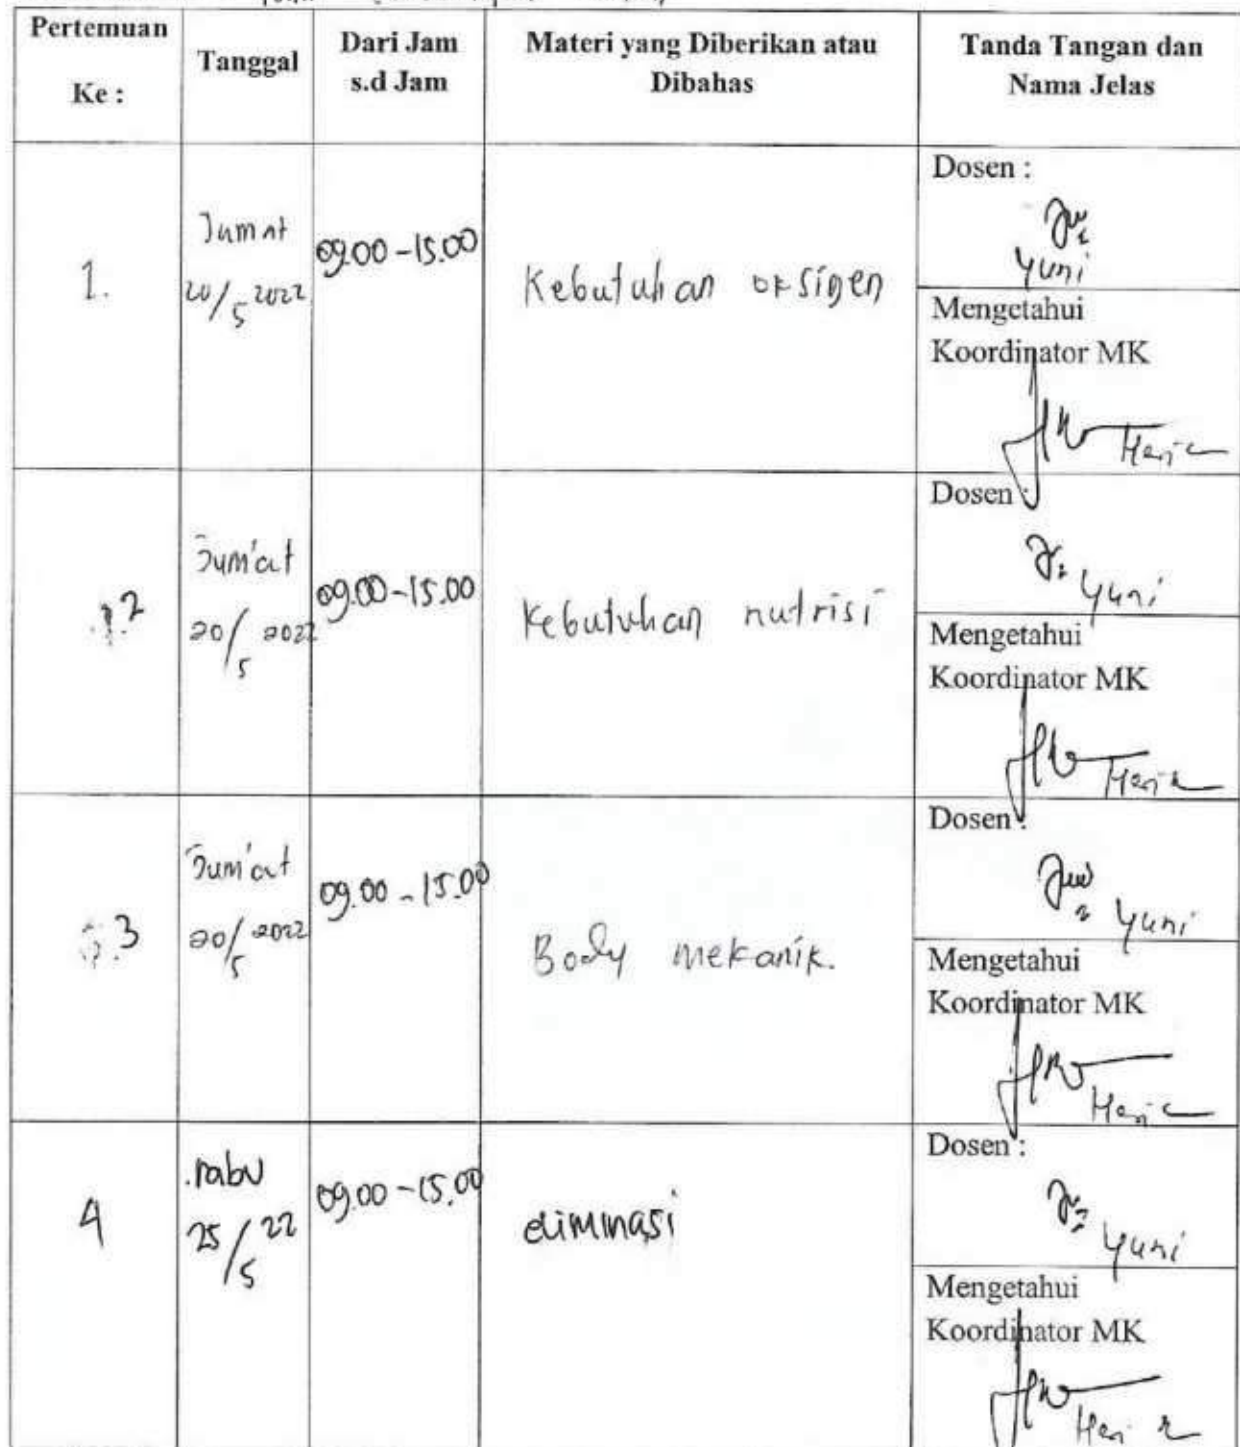 Pertemuan
Ke :
Tanggal
Dari Jam
s.d Jam
Materi yang Diberikan atau
Dibahas
Tanda Tangan dan
Nama Jelas
1.
Jumat
20/5 2022
09.00 - 15.00
Kebutuhan oksigen
Dosen :
Yuni
Mengetahui
Koordinator MK
2
Jum'at
20/5 2022
09.00 - 15.00
Kebutuhan nutrisi
Dosen :
Yuni
Mengetahui
Koordinator MK
3
Jum'at
20/5 2022
09.00 - 15.00
Body mekanik.
Dosen :
Yuni
Mengetahui
Koordinator MK
4
rabu
25/5 22
09.00 - 15.00
eliminasi
Dosen :
Yuni
Mengetahui
Koordinator MK